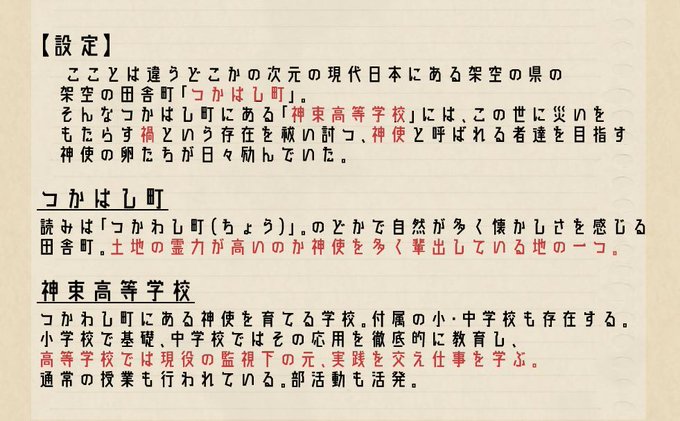 【設定】
こことは違うどこかの次元の現代日本にある架空の県の
架空の田舎町「つかはし町」。
そんなつかはし町にある「神束高等学校」には、この世に災いを
もたらす禍という存在を祓い討つ、神使と呼ばれる者達を目指す
神使の卵たちが日々励んでいた。
つかはし町
読みは「つかわし町(ちょう)」。のどかで自然が多く懐かしさを感じる
田舎町。土地の霊力が高いのか神使を多く輩出している地の一つ。
神束高等学校
つかわし町にある神使を育てる学校。付属の小・中学校も存在する。
小学校で基礎、中学校ではその応用を徹底的に教育し、
高等学校では現役の監視下の元、実践を交え仕事を学ぶ。
通常の授業も行われている。部活動も活発。